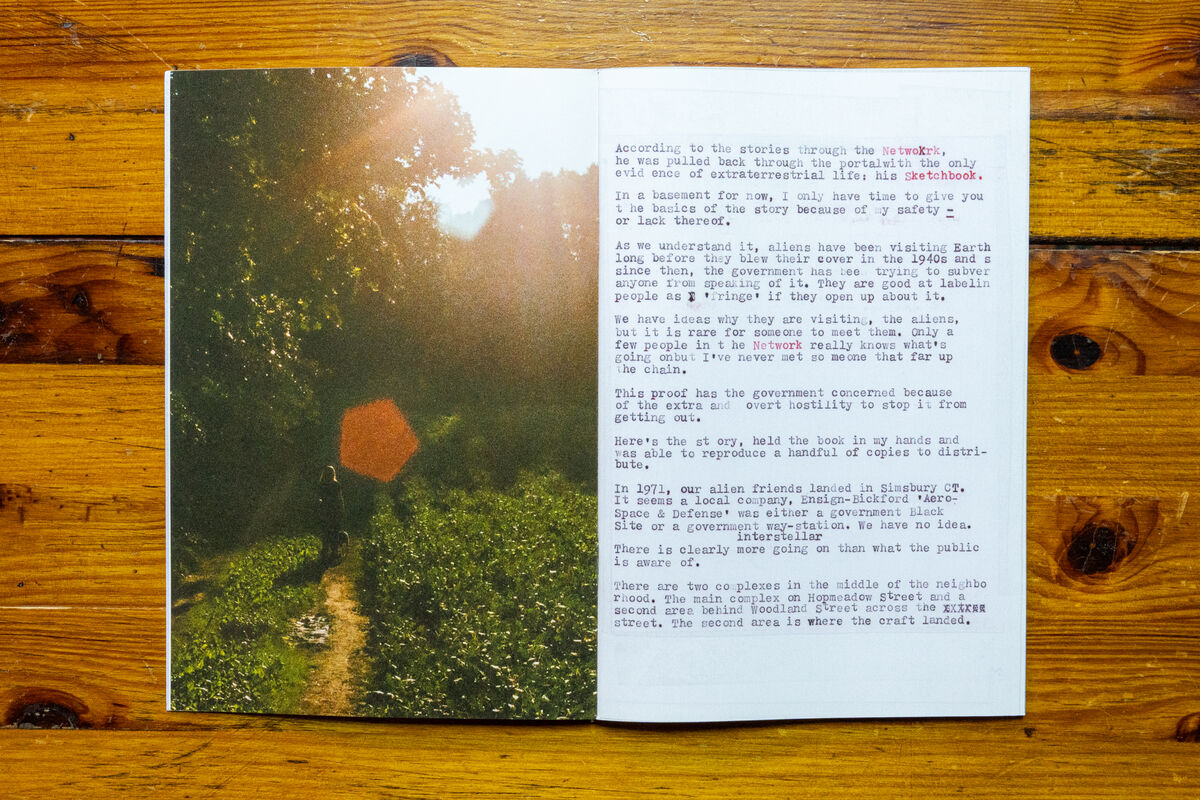 According to the stories through the NetwoXrk,
he was pulled back through the portalwith the only
evid ence of extraterrestrial life: his Sketchbook.
In a basement for now, I only have time to give you
t he basics of the story because of my safety -
or lack thereof.
As we understand it, aliens have been visiting Earth
long before they blew their cover in the 1940s and s
since then, the government has been trying to subver
anyone from speaking of it. They are good at labelin
people as 'fringe' if they open up about it.
We have ideas why they are visiting, the aliens,
but it is rare for someone to meet them. Only a
few people in t he Network really knows what's
going onbut I've never met so meone that far up
the chain.
This proof has the government concerned because
of the extra and overt hostility to stop it from
getting out.
Here's the st ory, held the book in my hands and
was able to reproduce a handful of copies to distri-
bute.
In 1971, our alien friends landed in Simsbury CT.
It seems a local company, Ensign-Bickford 'Aero-
Space & Defense' was either a government Black
Site or a government way-station. We have no idea.
interstellar
There is clearly more going on than what the public
is aware of.
There are two complexes in the middle of the neighbo
rhood. The main complex on Hopmeadow Street and a
second area behind Woodland Street across the
street. The second area is where the craft landed.